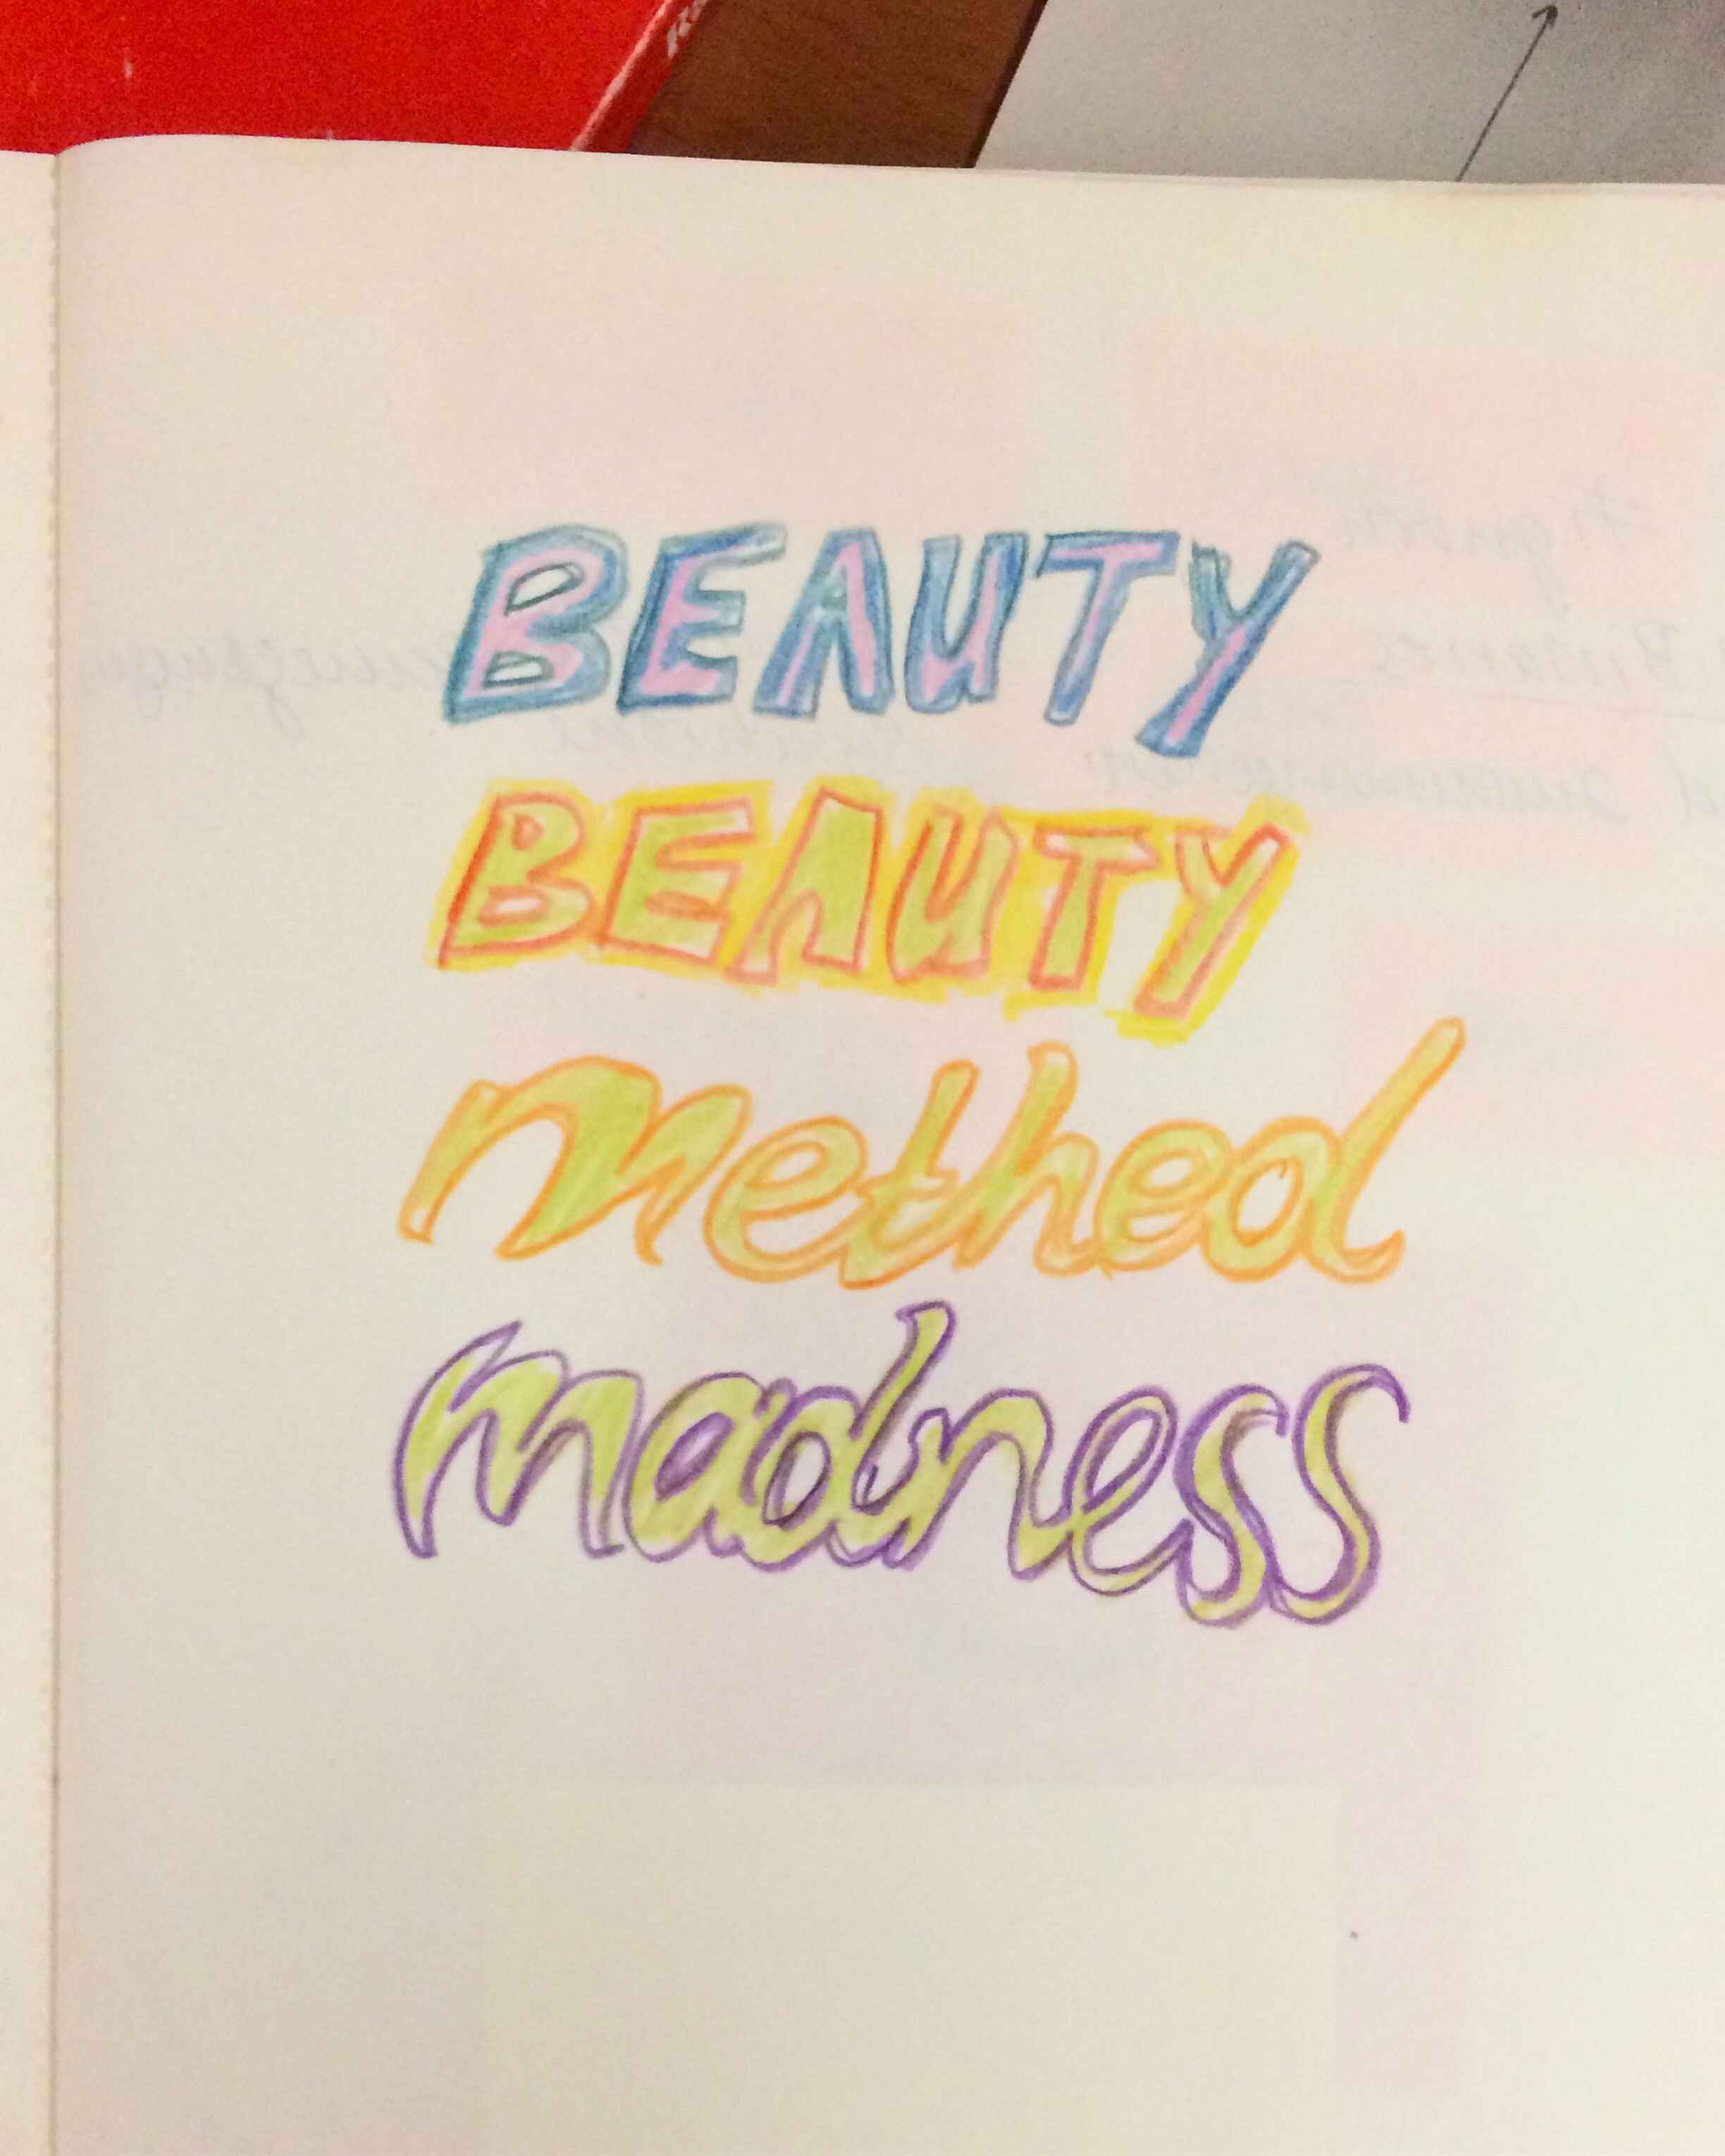 BEAUTY
BEAUTY
method
madness